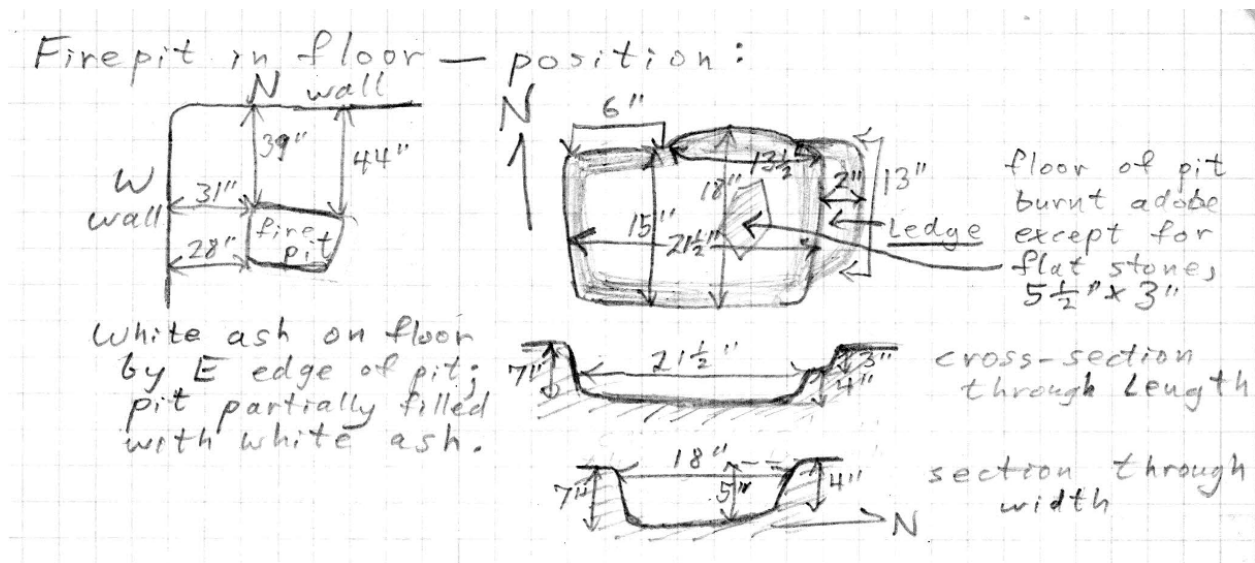 Firepit in floor — position:
N wall
W
wall
39"
44"
31"
28"
fire
pit
White ash on floor
by E edge of pit;
pit partially filled
with white ash.
N
6"
13½
18"
15"
21½"
2"
13"
Ledge
floor of pit
burnt adobe
except for
flat stone,
5½" x 3"
7"
21½"
3"
4"
cross-section
through Length
18"
7"
5"
4"
N
section through
width